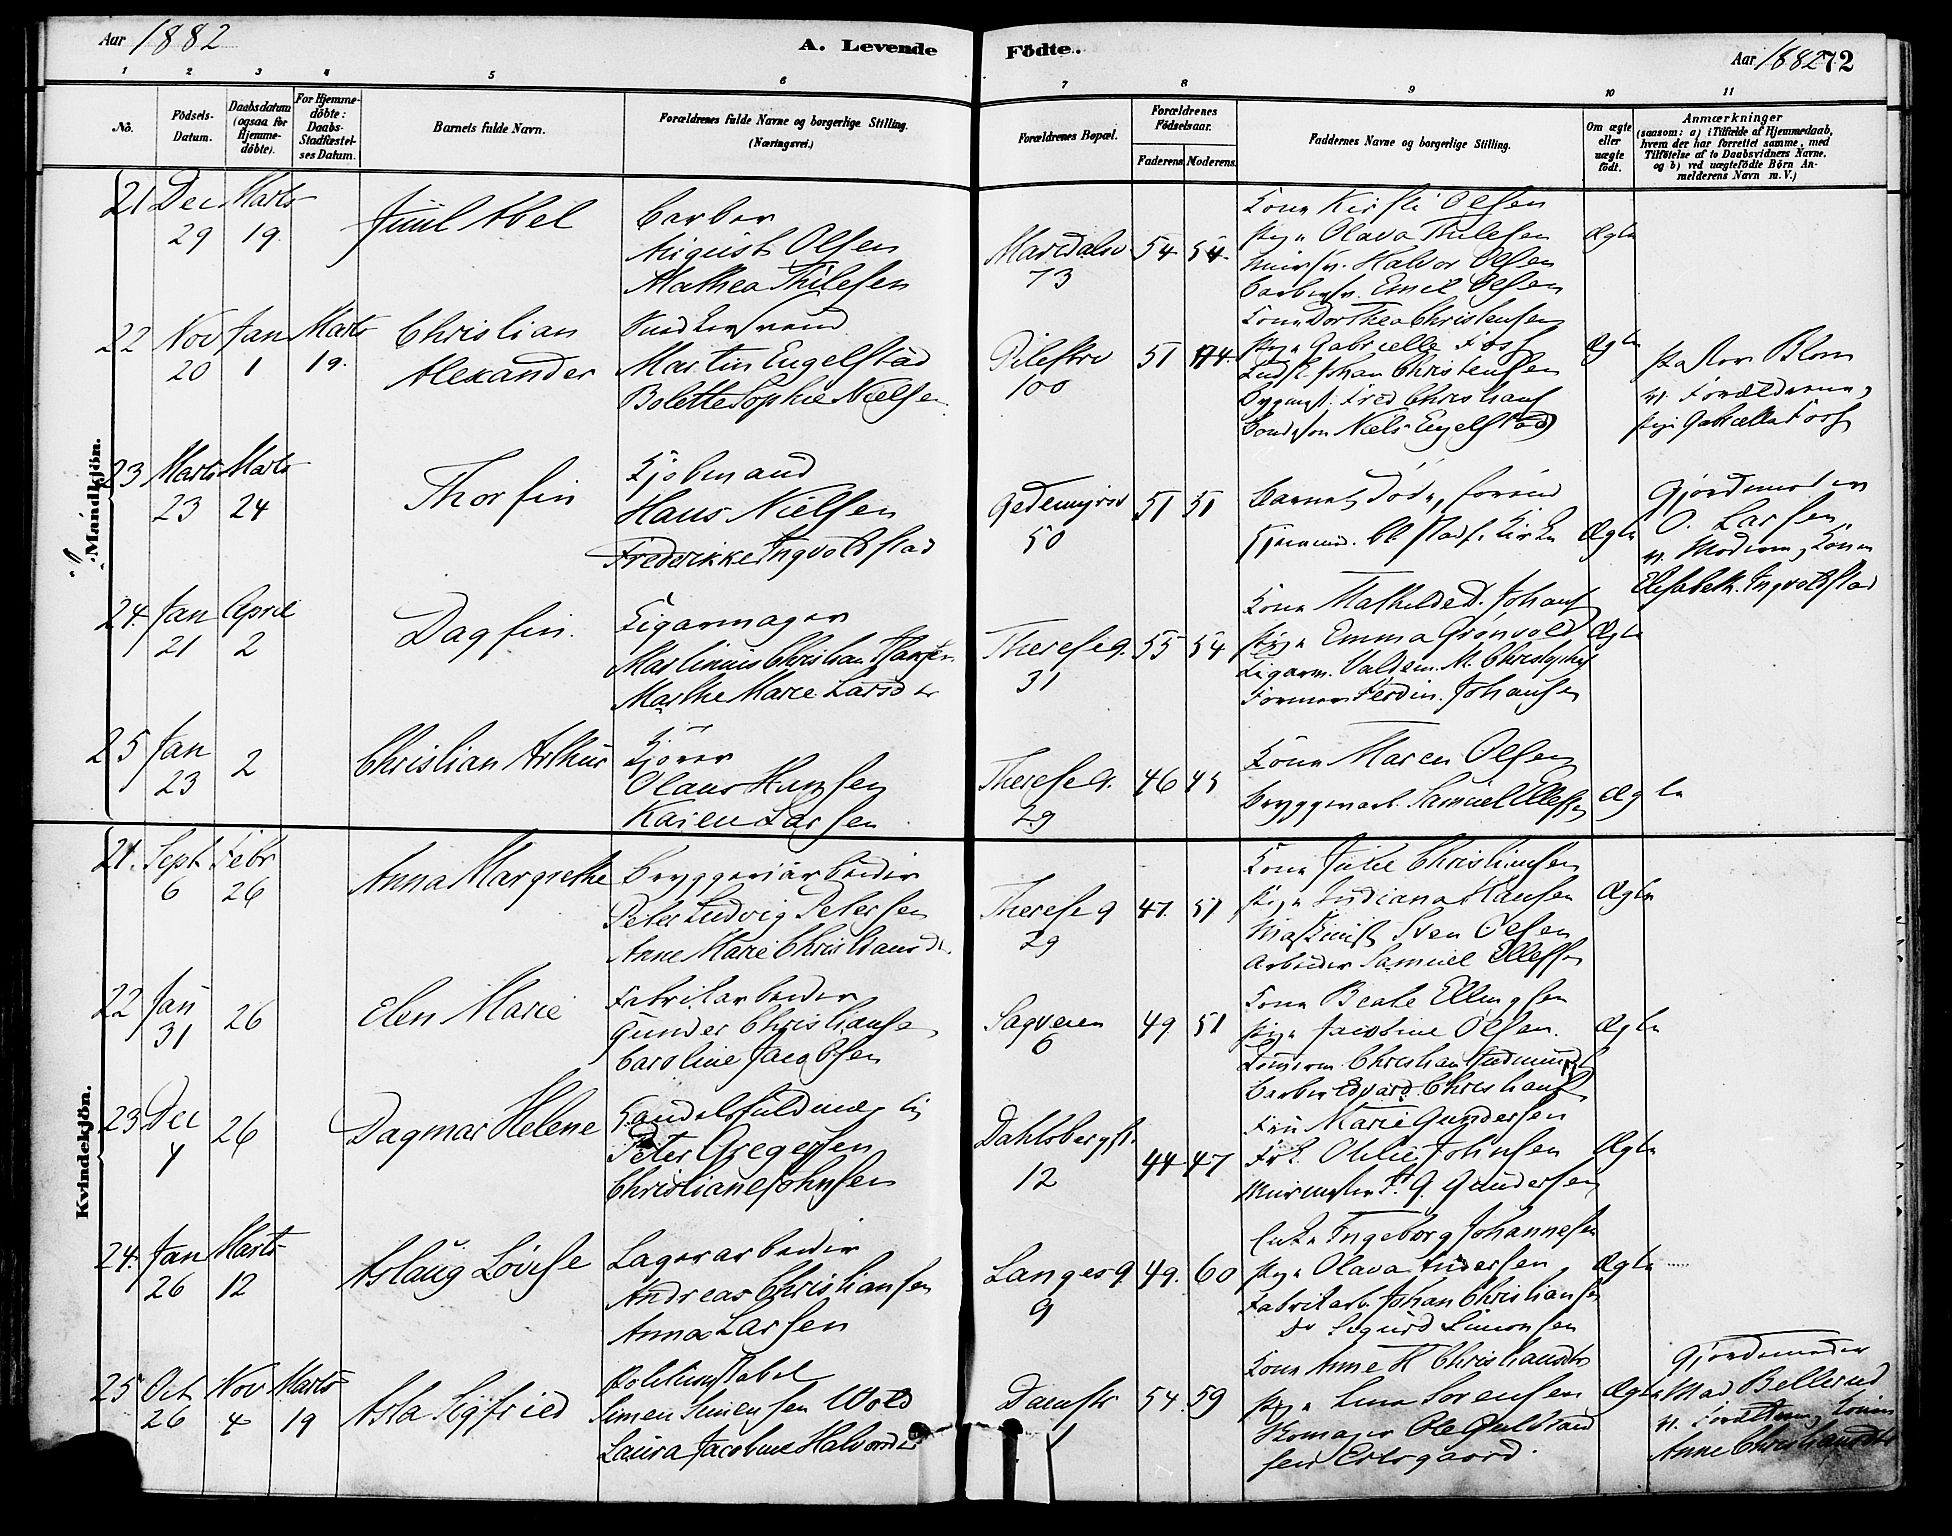 Aar 1882
A. Levende Födte.
Aar 1882
72
1 2 3 4 5 6 7 8 9 10 11
No.
Födsels-Datum.
Daabsdatum (ogsaa for Hjemme-döbte).
For Hjemme-döbte: Daabs-Stadfæstel-ses Datum.
Barnets fulde Navn.
Forældrenes fulde Navne og borgerlige Stilling. (Næringsvei.)
Forældrenes Bopæl.
Forældrenes Födselsaar.
Faderens. Moderens.
Faddernes Navne og borgerlige Stilling.
Om ægte eller uægte födt.
Anmærkninger
(saasom: a) i Tilfælde af Hjemmedaab,
hvem der har forrettet samme, med
Tilföielse af to Daabsvidners Navne,
og b) ved uægtefödte Börn An-
melderens Navn m. V.)
Mandkjön.
21 Dec 29 Marts 19
Juul Abel
Barber
August Olsen
Mathea Thilesen
Maridalsv 73
54 54
Kone Kirsti Olsen
Pige Olava Thilesen
Halvor Olsen
Emil Olsen
Ægte
22 Nov 20 Jan 1 Marts 19.
Christian Alexander
Martin Engelstad
Bolette Sophie Nielsen
Pilestræ 100
51
Kone Dorthea Christensen
Pige Gabrielle Foss
Johan Christensen
Fred Christians
Niels Engelstad
Ægte
Pastor Blom
v. Forældrene,
Pige Gabriella Foss
23 Marts 23 Marts 24
Thorfin
Kjøbmand
Hans Nielsen
Frederikke Ingvoldstad
Gedemyrsv 50
51 51
Barnet døde, førend
Kirke
Ægte
Gjordemoder
O. Larsen,
v. Moderen, Konen
Elisabeth Ingvoldstad
24. Jan 21 April 2
Dagfin.
Cigarmager
Martinius Christian Hansen
Marthe Marie Larsdr
Thereseg. 31
55 54
Kone Mathilde D. Johans
Pige Emma Grønvold
Cigarm. Valdem. M. Christophs
Former Ferdin. Johansen
Ægte
25 Jan 23 2
Christian Arthur
Kjører
Olaus Hansen
Karen Larsen
Thereseg. 29
46 45
Kone Maren Olsen
Bryggeriarb. Samuel Ellefs
Ægte
Kvindekjön.
21. Sept 6 Febr 26
Anna Margrethe
Bryggeriarbeider
Peter Ludvig Petersen
Anne Marie Christiansdr.
Thereseg 29
47. 51
Kone Julie Christiansen
Pige Indiana Hansen
Maskinist Sven Olsen
Arbeider Samuel Ellefsen
Ægte
22 Jan 31 26
Elen Marie
Fabrikarbeider
Gunder Christiansen
Caroline Jacobsen
Sagveien 6
49 51
Kone Beate Ellingsen
Pige Jacobine Olsen.
Barber Edvard Christians
Ægte
23 Dec 4 26
Dagmar Helene
Handelsfuldmægtig
Peter Gregersen
Christiane Johnsen
Dahlsbergst. 12
44 47
Fru Marie Gundersen
Frk. Othilie Johnsen
Murmester F. G. Gundersen
Ægte
24. Jan 26 Marts 12
Aslaug Lovise
Lagerarbeider
Andreas Christiansen
Anna Larsen
Langesg. 9
49. 60
Enke Ingeborg Johannesen
Pige Olava Andersen
Fabrikarb. Johan Christiansen
Do Sigurd Simonsen
Ægte
25 Oct 26 Nov 4 Marts 19
Asta Sigfried
Politikonstabel
Simen Simensen Wold
Laura Jacobine Halvorsdr
Damstr 1
54. 59
Kone Anne H Christiansdr
Pige Lina Sørensen
Skomager Ole Gulbrand
sen Ertsgaard.
Ægte
Gjordemoder
Mad Bellerud
v. Forældrene, Konen
Anne Christiansdtr